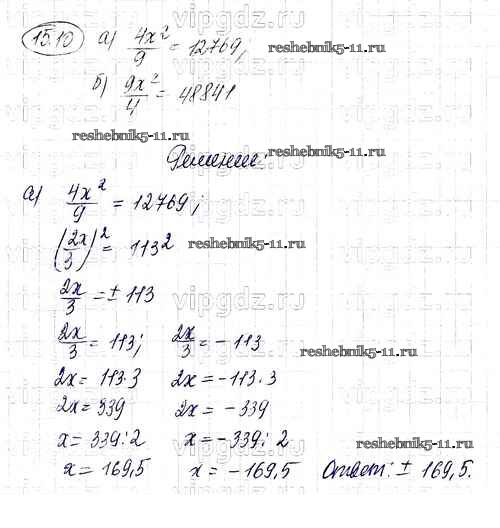 vipgdz.ru
15.10 а) 4x²/9 = 12769; reshebnik5-11.ru
б) 9x²/4 = 48841
vipgdz.ru
reshebnik5-11.ru
Решение: reshebnik5-11.ru
а) 4x²/9 = 12769;
vipgdz.ru
(2x/3)² = 113² reshebnik5-11.ru
2x/3 = ± 113
vipgdz.ru
2x/3 = 113; 2x/3 = - 113 reshebnik5-11.ru
2x = 113·3 2x = -113·3
2x = 339 2x = -339
vipgdz.ru
x = 339:2 x = -339:2 reshebnik5-11.ru
x = 169,5 x = -169,5 Ответ: ± 169,5.
vipgdz.ru